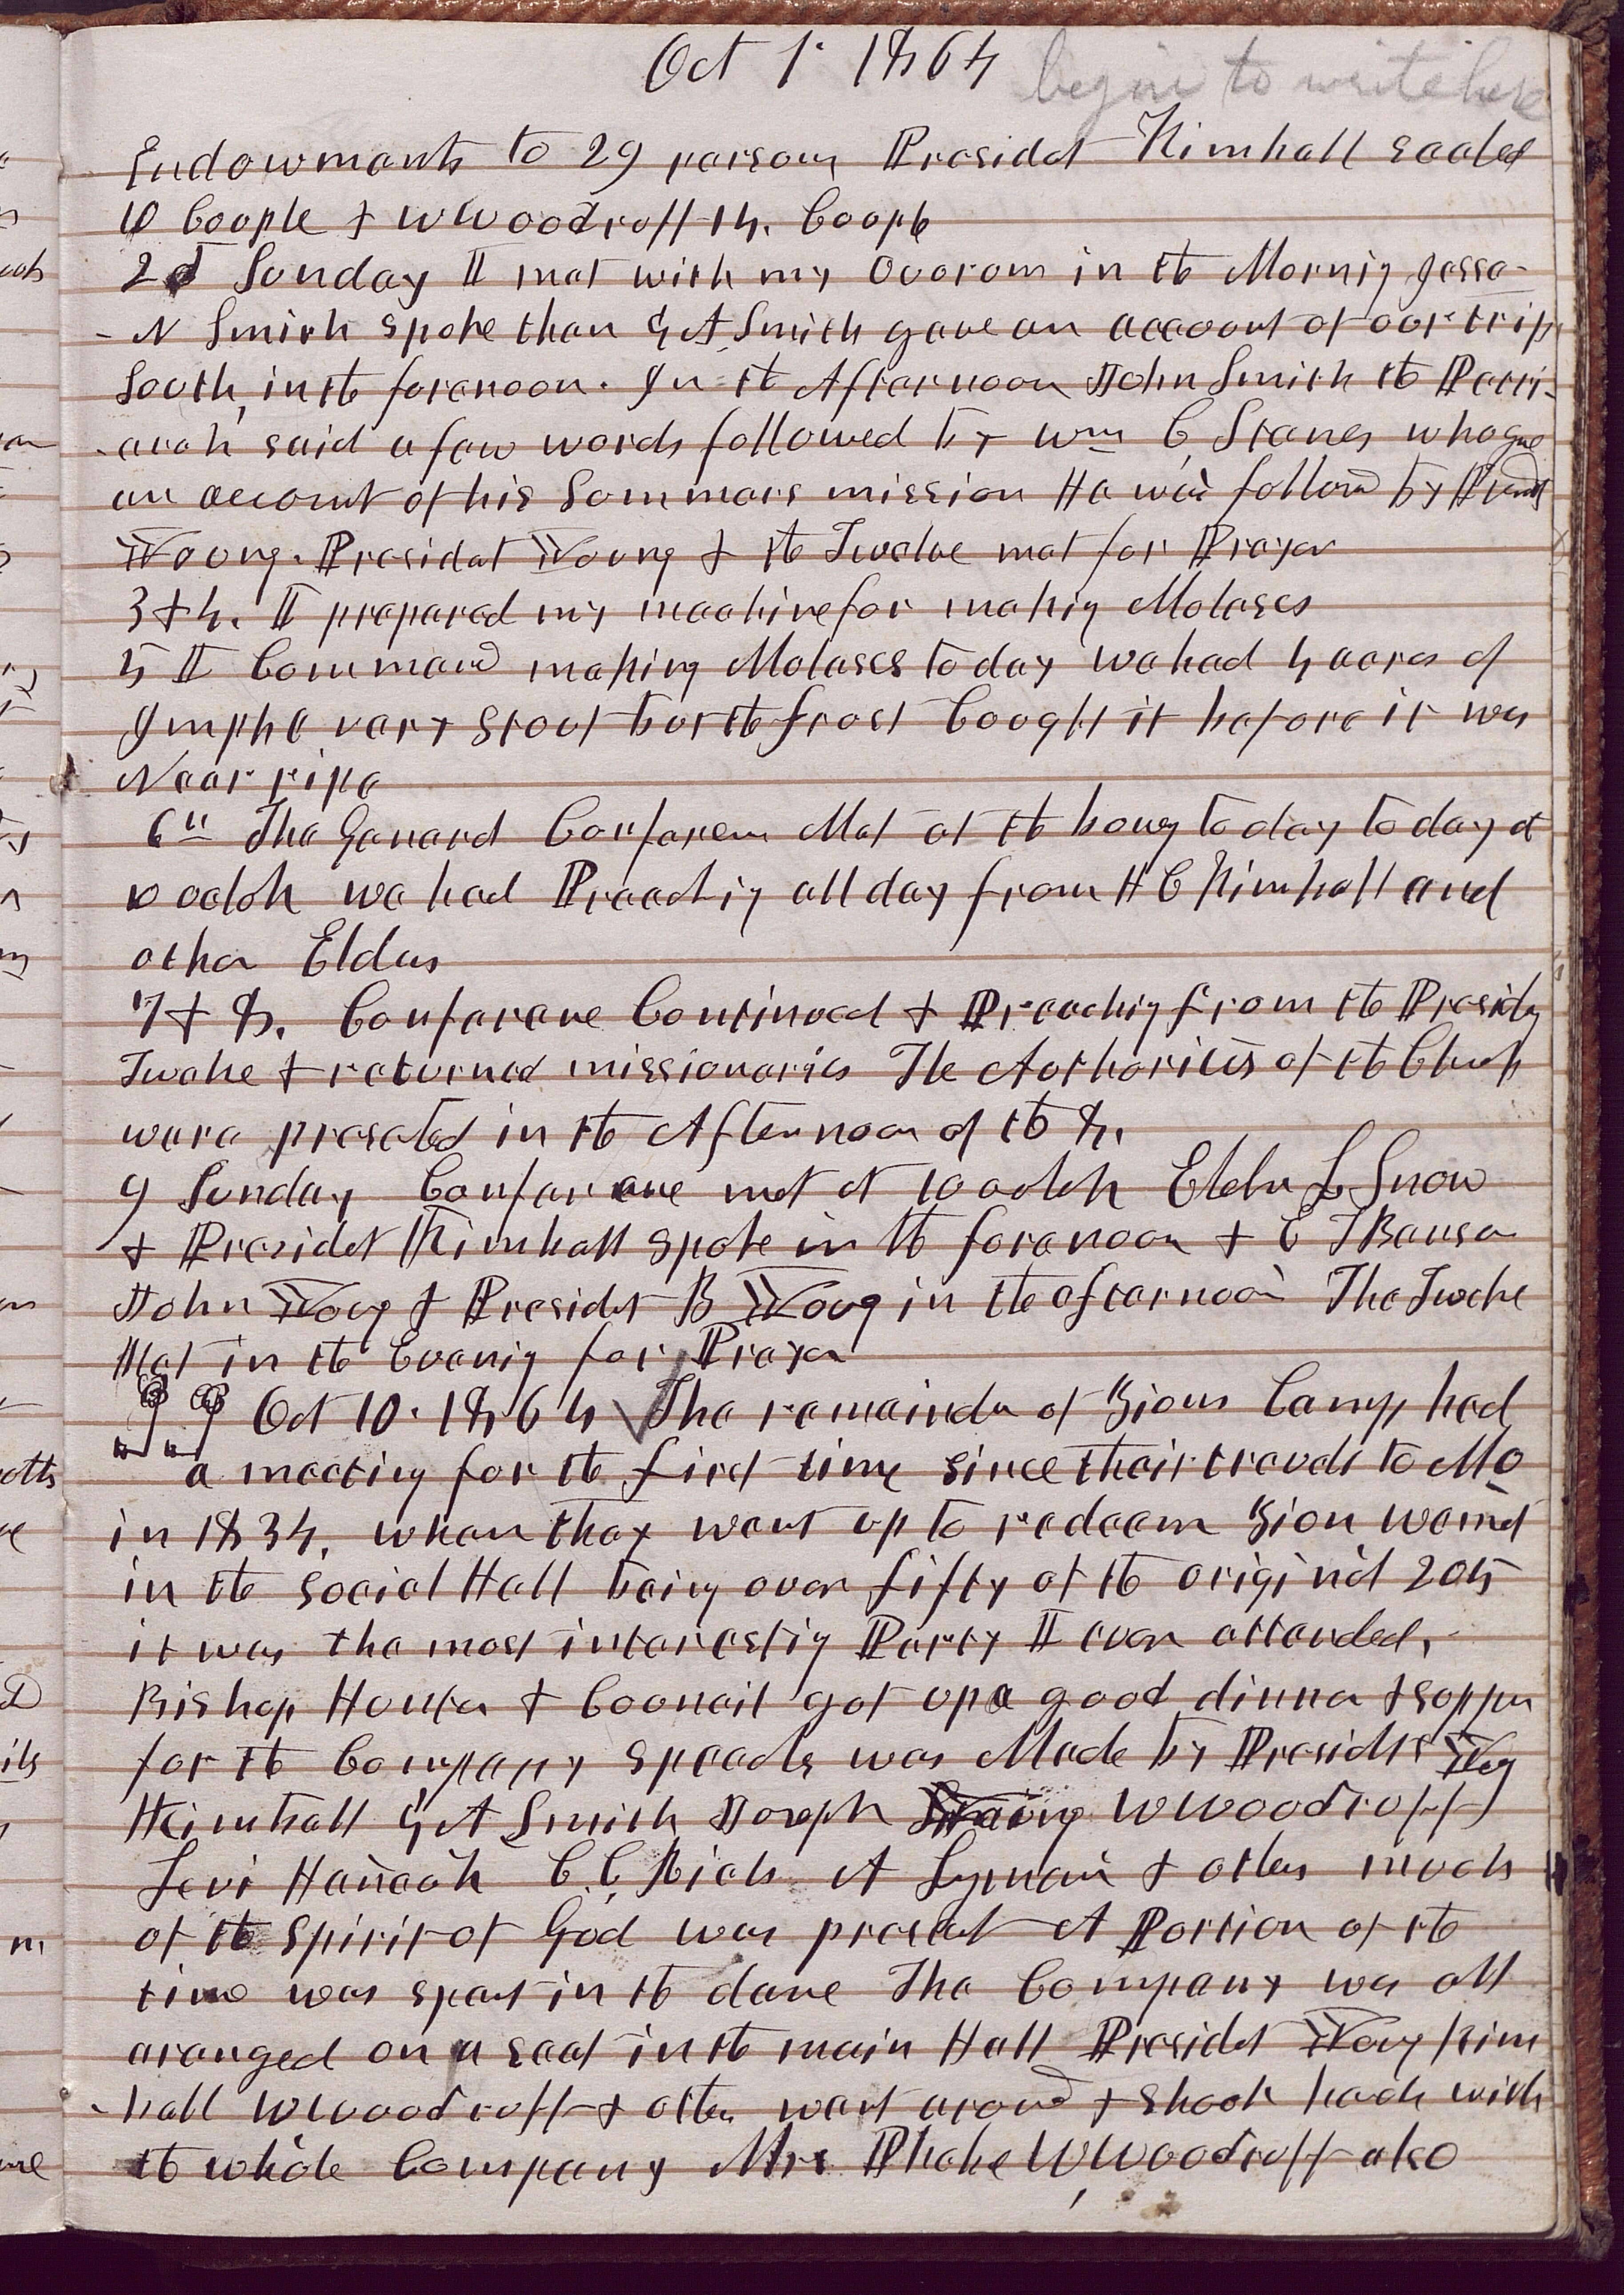 Oct 1. 1864 begin to write here
Endowments to 29 persons President Kimball sealed
10 Couple & W Woodruff 14. Couple
2d Sunday I met with my Quorum in the Mornig Jesse
- N Smith spoke then G A Smith gave an account of our trip
South, in the forenoon. In the Afternoon John Smith the Patri-
-arch said a few words followed by Wm C, Stanes who gave
an account of his Sommers mission He was followed by Presidet
Young. Presidet Young & the Twelve met for Prayer
3 & 4. I prepared my machine for makig Molases
5 I Commencd making Molases to day we had 4 acres of
Imphe very stout but the frost Cought it before it was
Near ripe
6th The General Conferen Met at the bowry to day to day at
10 oclok we had Preachig all day from H C Kimball and
other Elders
7 & 8. Conferene Continued & Preachig from the Presidy
Twelve & returned missionaries The Authorities of the Church
were preseted in the Afternoon of the 8.
9 Sunday Conferene met at 10 oclok Elder L Snow
& Presidet Kimball spoke in the forenoon & E T Benson
John Young & Presidet B Young in the afternoon The Twelve
Met in the Evenig for Prayer
Oct 10. 1864 The remainder of Zions Camp had
a meeting for the first time since their travels to Mo
in 1834, when they went up to redeem Zion we met
in the Social Hall being over fifty of the original 205
it was the most interestig Party I ever attended,
Bishop Hunter & Council got up a good dinner & supper
for the Company speeches was Made by Presidets Yog
Kimball G A Smith Joseph Young W Woodruff
Levi Hancock C. C, Rich A Lyman & others much
of the spirit of God was preset A Portion of the
time was spent in the dance The Company was all
aranged on a seat in the main Hall Presidet Young Kim
-ball W Woodruff & others went around & shook hands with
the whole Company Mrs Phebe W Woodruff also